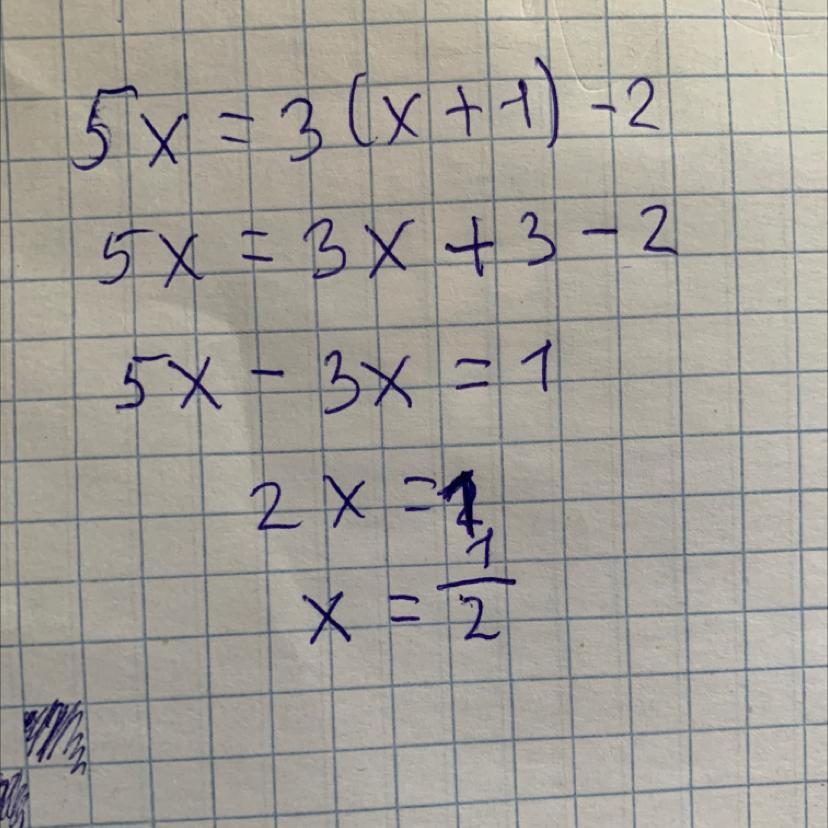 5x = 3(x+1) - 2
5x = 3x + 3 - 2
5x - 3x = 1
2x = 1
x = 1/2